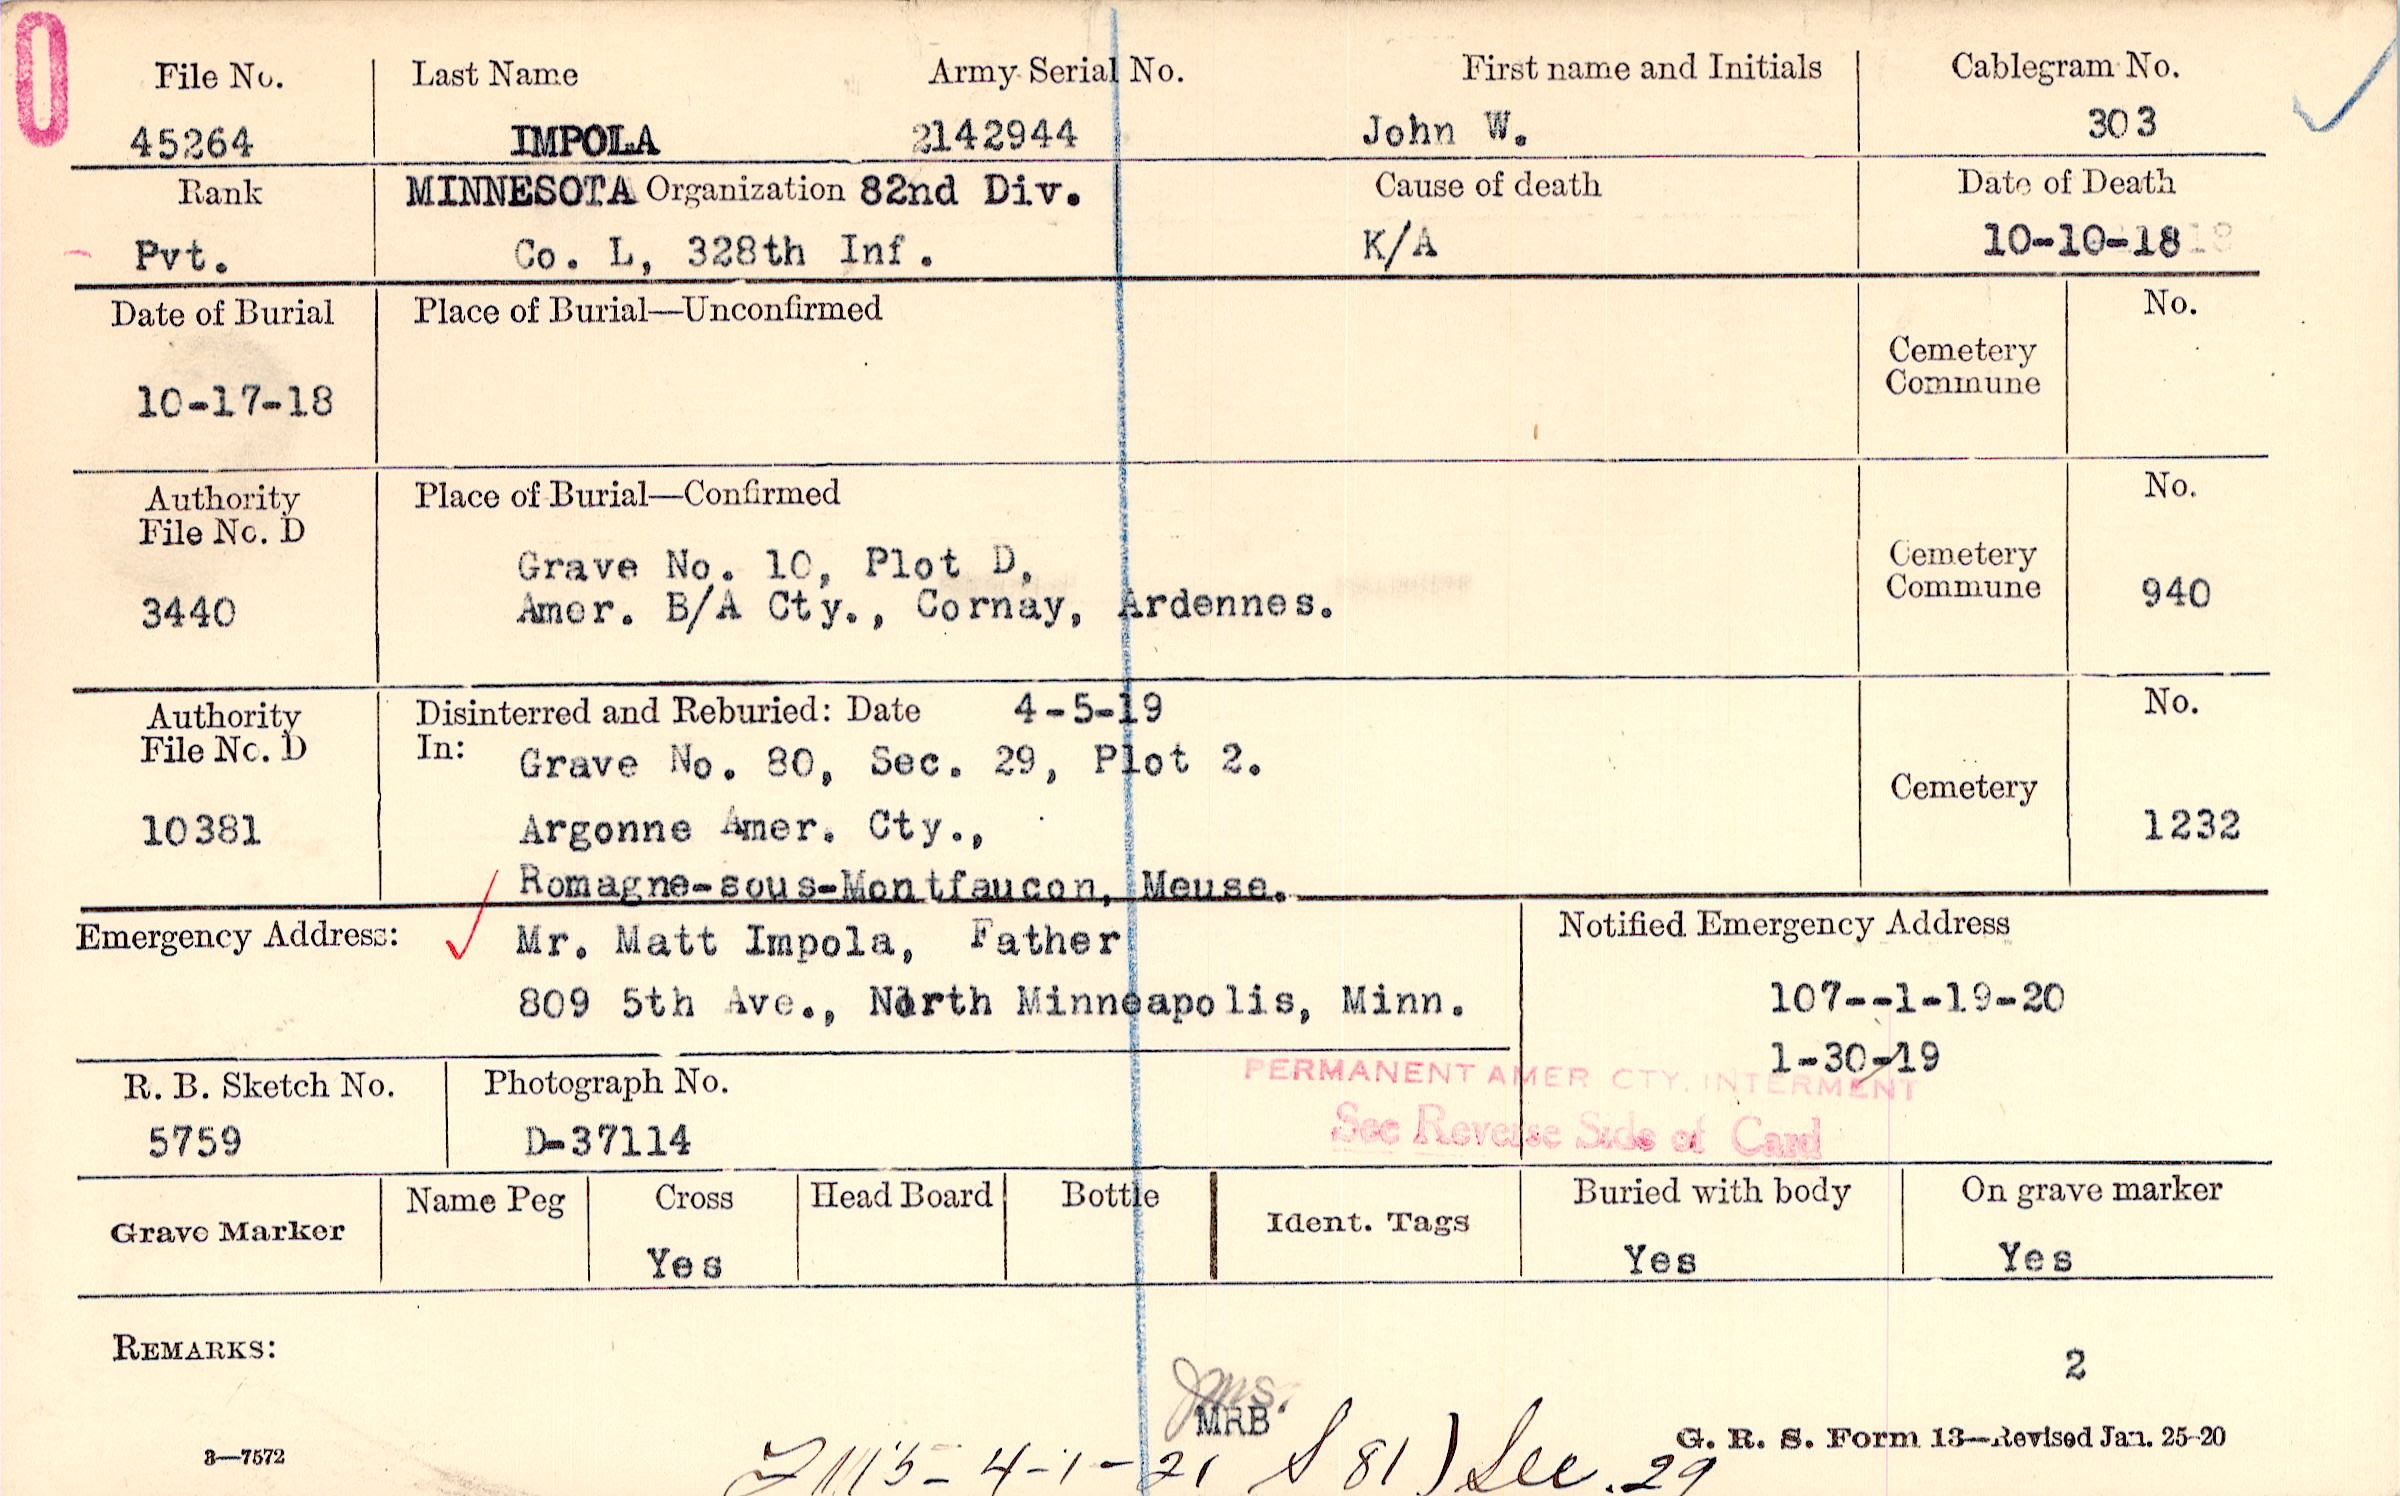 0
File No. Last Name Army Serial No. First name and Initials Cablegram No.
45264 IMPOLA 2142944 John W. 303
Rank MINNESOTA Organization 82nd Div. Cause of death Date of Death
Pvt. Co. L, 328th Inf. K/A 10-10-18
Date of Burial Place of Burial—Unconfirmed No.
Cemetery
Commune
10-17-18
Authority Place of Burial—Confirmed No.
File No. D
Grave No. 10, Plot D, Cemetery
3440 Amer. B/A Cty., Cornay, Ardennes. Commune 940
Authority Disinterred and Reburied: Date 4-5-19 No.
File No. D In: Grave No. 80, Sec. 29, Plot 2.
Cemetery
10381 Argonne Amer. Cty., 1232
Romagne-sous-Montfaucon, Meuse.
Emergency Address: Mr. Matt Impola, Father Notified Emergency Address
809 5th Ave., North Minneapolis, Minn. 107--1-19-20
1-30-19
PERMANENT AMER CTY. INTERMENT
R. B. Sketch No. Photograph No.
See Reverse Side of Card
5759 D-37114
Grave Marker Name Peg Cross Head Board Bottle Ident. Tags Buried with body On grave marker
Yes Yes Yes
REMARKS:
2
JMS.
MRB
3—7572 4-1-21 S 81) Sec. 29 G. R. S. Form 13—Revised Jan. 25-20